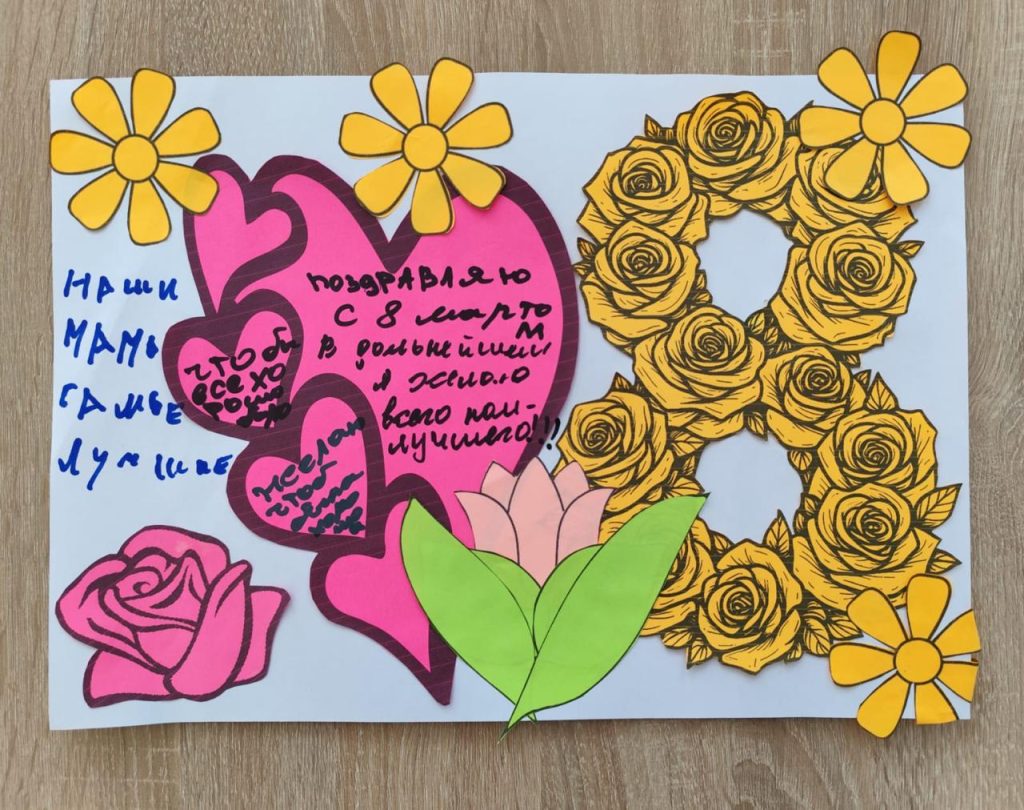 НАШИ
МАМЫ
САМЫЕ
ЛУЧШИЕ
ПОЗДРАВЛЯЮ
С 8 марто
М
В дольнейшем
я желаю
всего наи-
лучшего!!!
что бы
все хо
рошо
желаю
чтоб
8